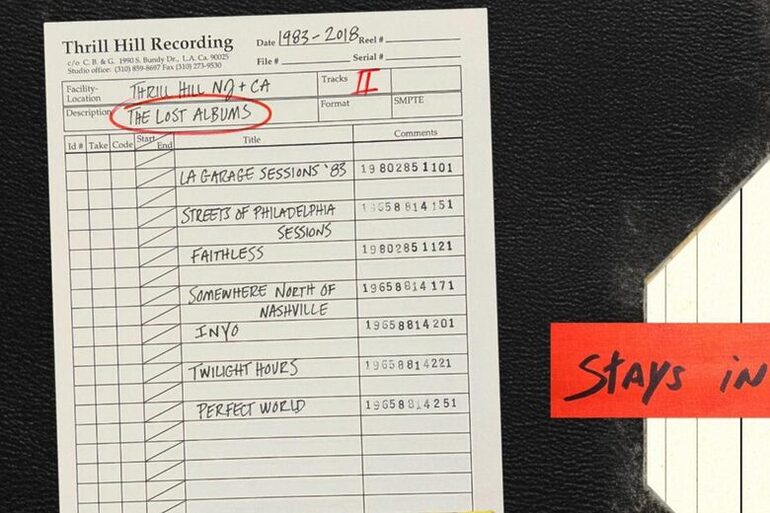 Thrill Hill Recording
Date 1983-2018 Reel #
c/o C. B. & G. 1990 S. Bundy Dr., L.A. Ca. 90025
Studio office: (310) 859-8697 Fax (310) 273-9530
File # Serial #
Facility-Location THRILL HILL NJ + CA Tracks II
Description THE LOST ALBUMS Format SMPTE
Id # Take Code Start End Title Comments
LA GARAGE SESSIONS '83 19802851101
STREETS OF PHILADELPHIA 19658814151
SESSIONS
FAITHLESS 19802851121
SOMEWHERE NORTH OF 19658814171
NASHVILLE
INYO 19658814201
TWILIGHT HOURS 19658814221
PERFECT WORLD 19658814251
STAYS IN